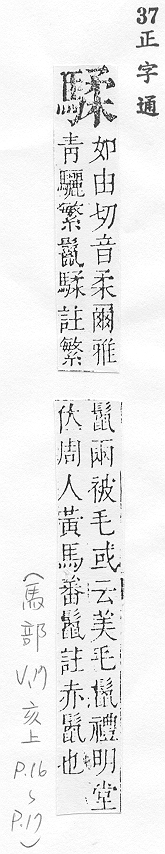 37 正字通
騥 如由切音柔爾雅
青驪繁鬣騥註繁
鬣兩被毛或云美毛鬣禮明堂
位周人黃馬蕃鬣註赤鬣也
(馬部 V.17 亥上 P.16〜P.17)